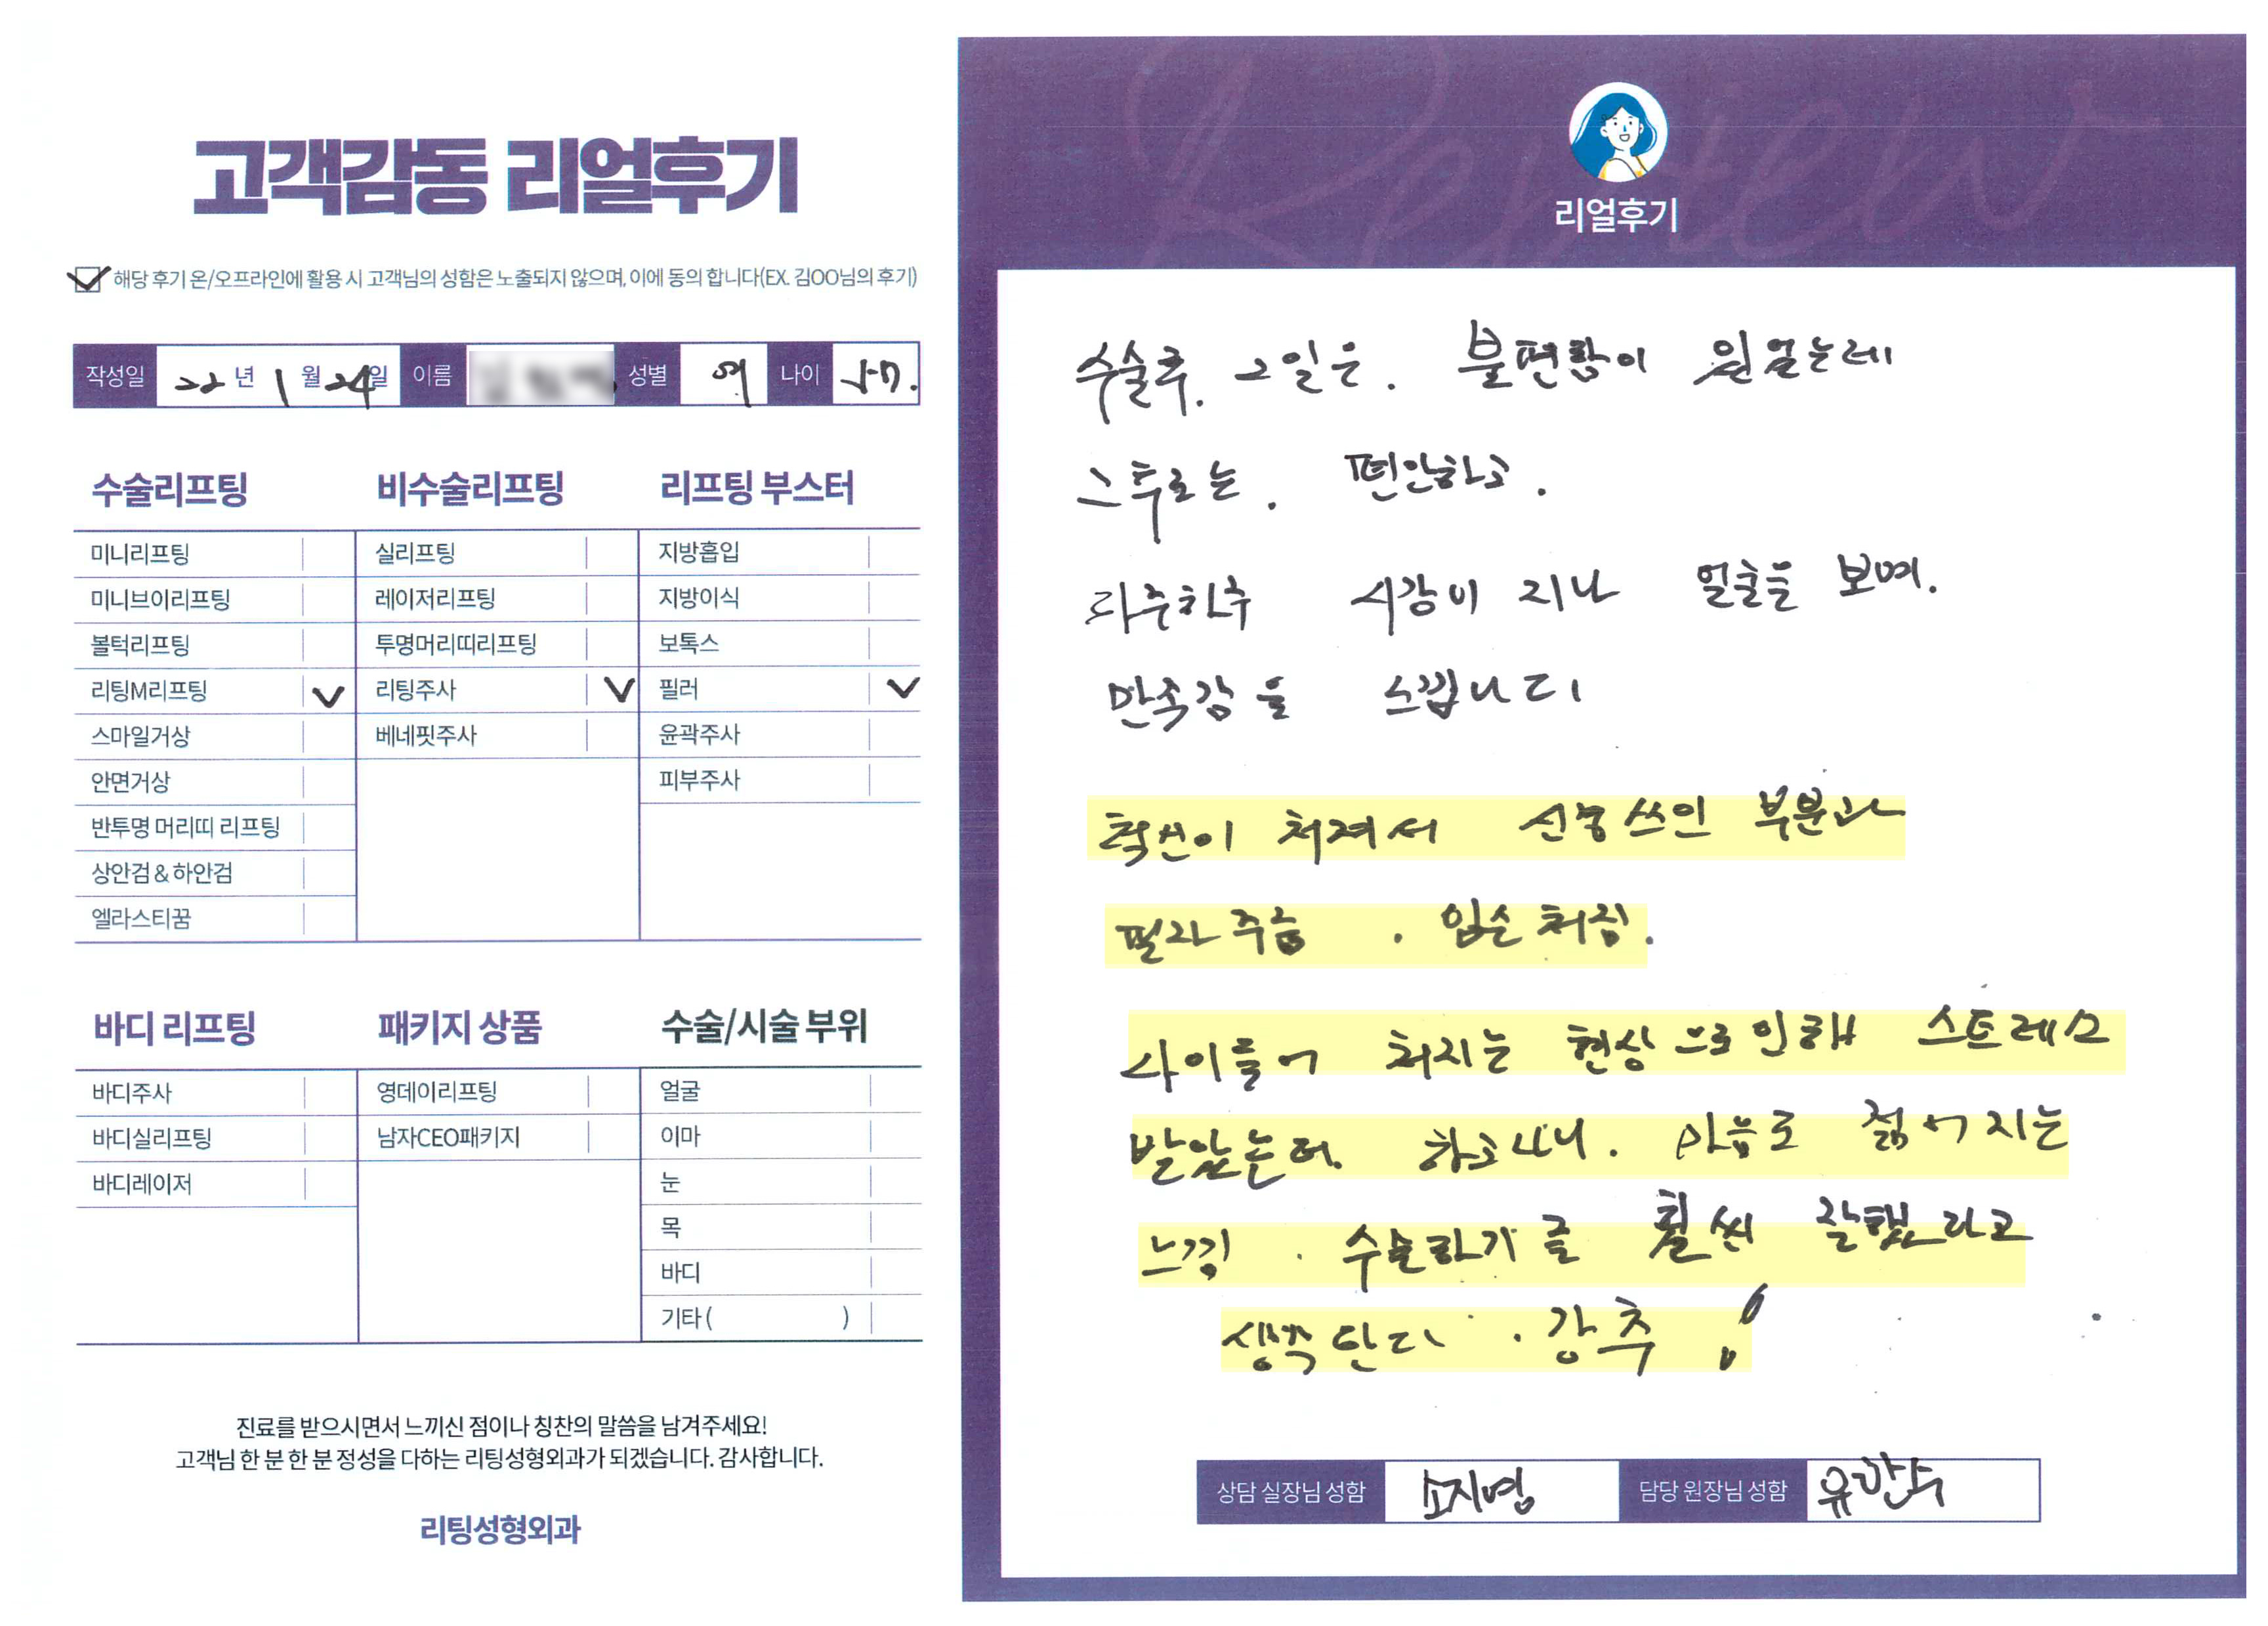 고객감동 리얼후기
해당 후기 온/오프라인에 활용 시 고객님의 성함은 노출되지 않으며, 이에 동의 합니다(EX. 김OO님의 후기)
작성일 22년 1월 24일 이름 성별 여 나이 57.
수술리프팅
미니리프팅
미니브이리프팅
볼턱리프팅
리팅M리프팅 V
스마일거상
안면거상
반투명 머리띠 리프팅
상안검 & 하안검
엘라스티꿈
비수술리프팅
실리프팅
레이저리프팅
투명머리띠리프팅
리팅주사 V
베네핏주사
리프팅 부스터
지방흡입
지방이식
보톡스
필러 V
윤곽주사
피부주사
바디 리프팅
바디주사
바디실리프팅
바디레이저
패키지 상품
영데이리프팅
남자CEO패키지
수술/시술 부위
얼굴
이마
눈
목
바디
기타 ( )
진료를 받으시면서 느끼신 점이나 칭찬의 말씀을 남겨주세요!
고객님 한 분 한 분 정성을 다하는 리팅성형외과가 되겠습니다. 감사합니다.
리팅성형외과
Review
리얼후기
수술후. 2일은. 불편함이 있었는데
그후로는. 편안하고.
하루하루 시간이 지나 얼굴을 보며.
만족감을 느낍니다
턱선이 쳐져서 신경쓰인 부분과
팔자주름 . 입술처짐.
나이들어 처지는 현상으로인해 스트레스
받았는데. 하고나니. 마음도 젊어지는
느낌 . 수술하기를 훨씬 잘했다고
생각한다 . 강추!
상담 실장님 성함 소지영 담당 원장님 성함 유한수